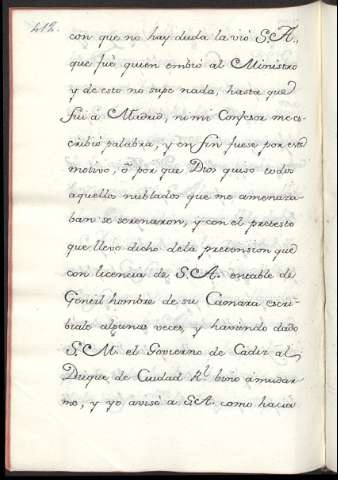 412.
con que no hay duda la vió S.A.,
que fuè quien embió al Ministro
y de esto no supe nada, hasta que
fui á Madrid, ni mi Confesor me es-
cribió palabra, y en fin fuese por este
motivo, ò por que Dios quiso todos
aquellos nublados que me amenaza-
ban se serenaron, y con el pretesto
que llevo dicho de la pretension que
con licencia de S.A. entable de
Gentil hombre de su Camara escri-
biale algunas veces, y haviendo dado
S.M. el Govierno de Cadiz al
Duque de Ciudad Rl. bino á mudar-
me, y yo avisé a S.A. como hacia